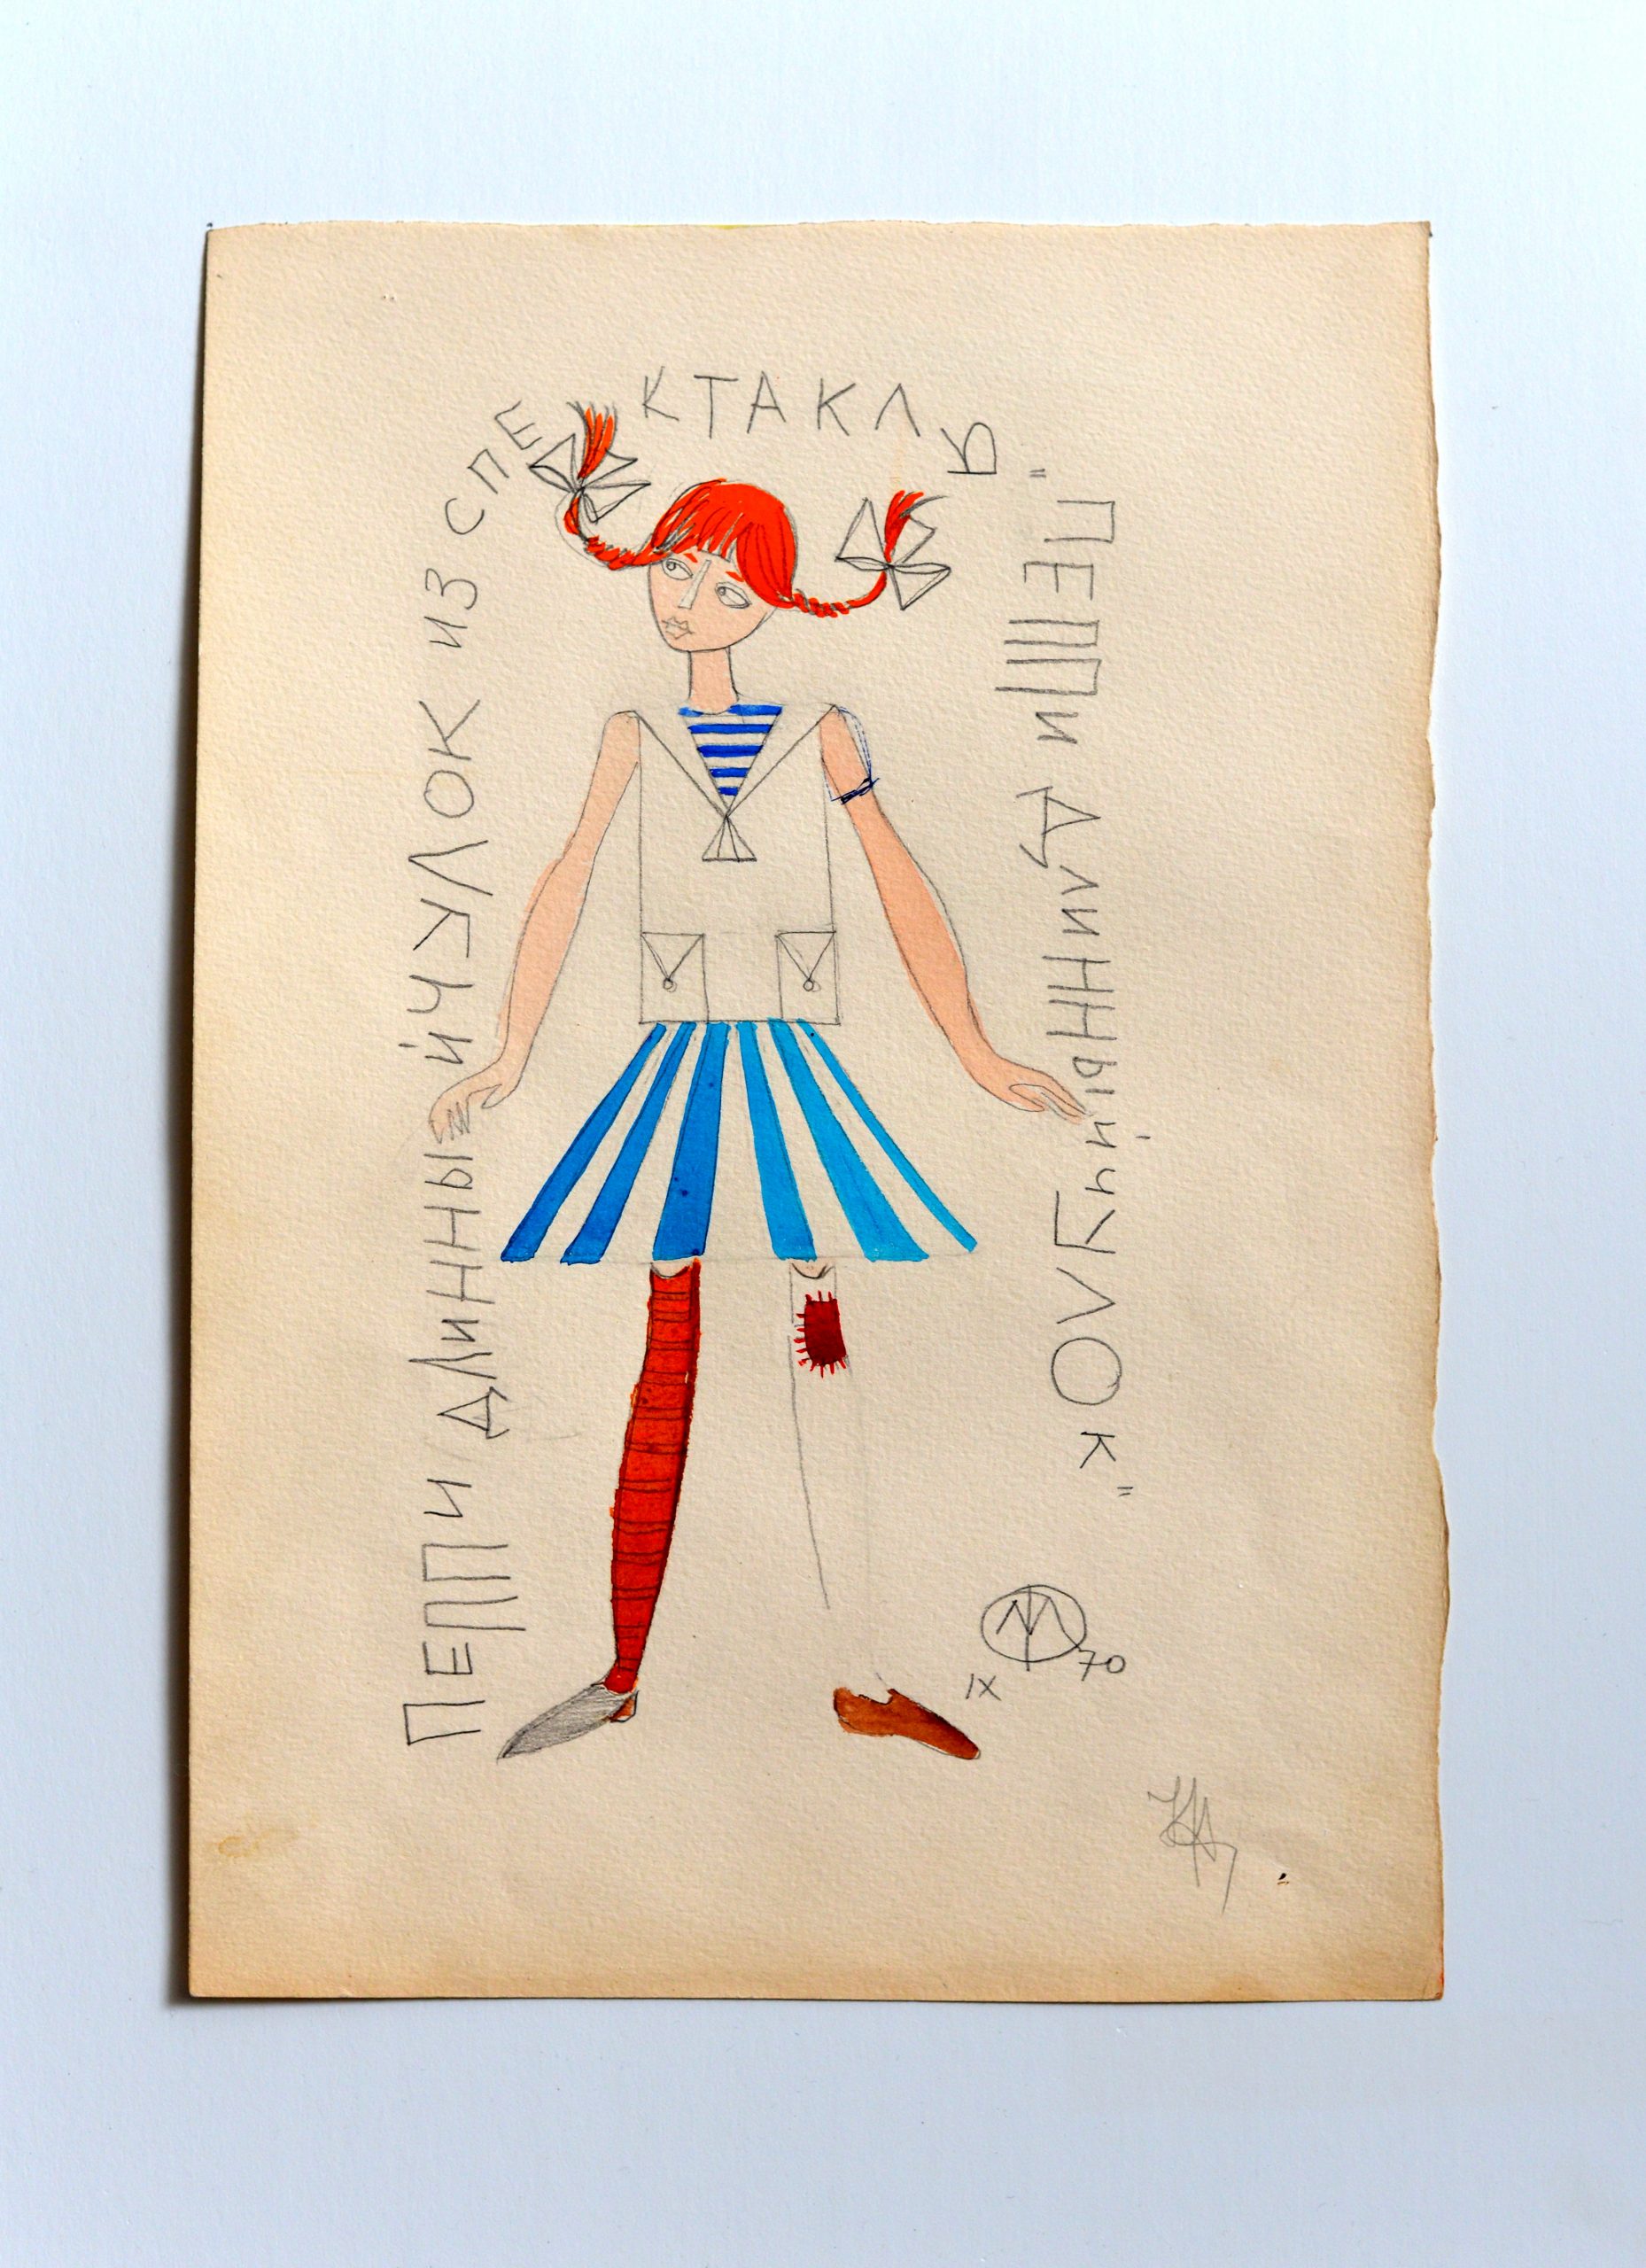 ПЕППИ ДЛИННЫЙ ЧУЛОК ИЗ СПЕКТАКЛЬ "ПЕППИ ДЛИННЫЙ ЧУЛОК"
IX 70